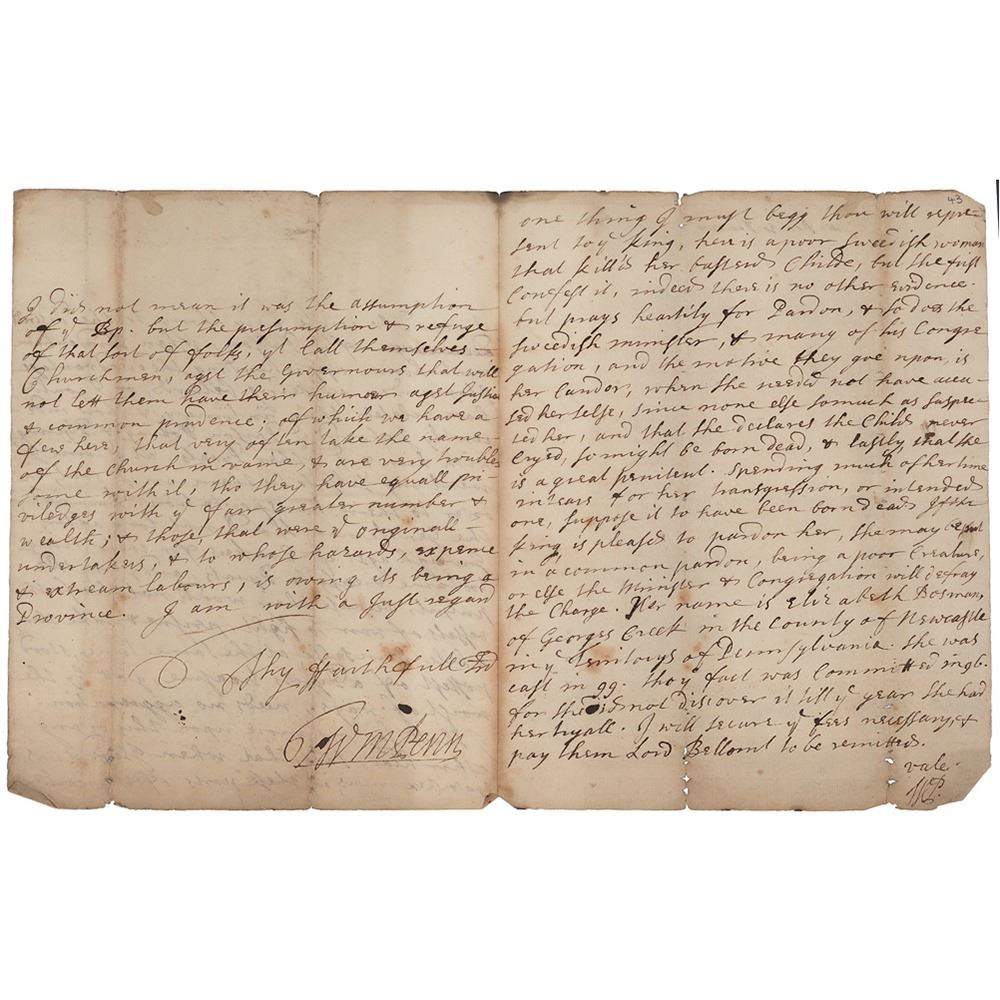 I did not mean it was the assumption
of ye Bp. but the presumption & refuge
of that sort of folks, yt call themselves
Churchmen, agst the Governours that will
not lett them have their humour agst Justice
& common prudence; of which we have a
few here, that very often take the name
of the Church in vaine, & are very trouble
some with it, tho they have equall pri-
viledges with ye farr greater number &
wealth; & those, that were ye originall
undertakers, & to whose hazards, expence
& extream labours, is owing its being a
Province. I am with a Just regard
Thy ffaithfull Frd
Wm Penn
43
one thing I must begg thou will repre-
sent to ye King, here is a poor Sweedish woman
that kill'd her bastard Childe, but she first
Confest it, indeed there is no other evidence.
but prays heartily for Pardon, & so does the
Sweedish minister, & many of his Congre
gation, and the motive they goe upon, is
her Candor, when she needed not have accu-
sed herselfe, since none else so much as suspec-
ted her, and that she declares the Child never
Cryed, so might be born dead, & lastly that she
is a great penitent. Spending much of her time
in tears for her transgression, or intended
one, suppose it to have been born dead. If the
King is pleased to pardon her, she may be put
in a common pardon, being a poor Creature,
or else the Minister & Congregation will defray
the Charge. Her name is Elizabeth Bosman,
of Georges Creek in the County of Newcastle
in ye Territorys of Pennsylvania. she was
cast in 99. tho ye fact was committed in 96.
for she did not discover it till ye year she had
her tryall. I will secure ye fees necessary, &
pay them Lord Bellomt to be remitted.
vale.
WP.